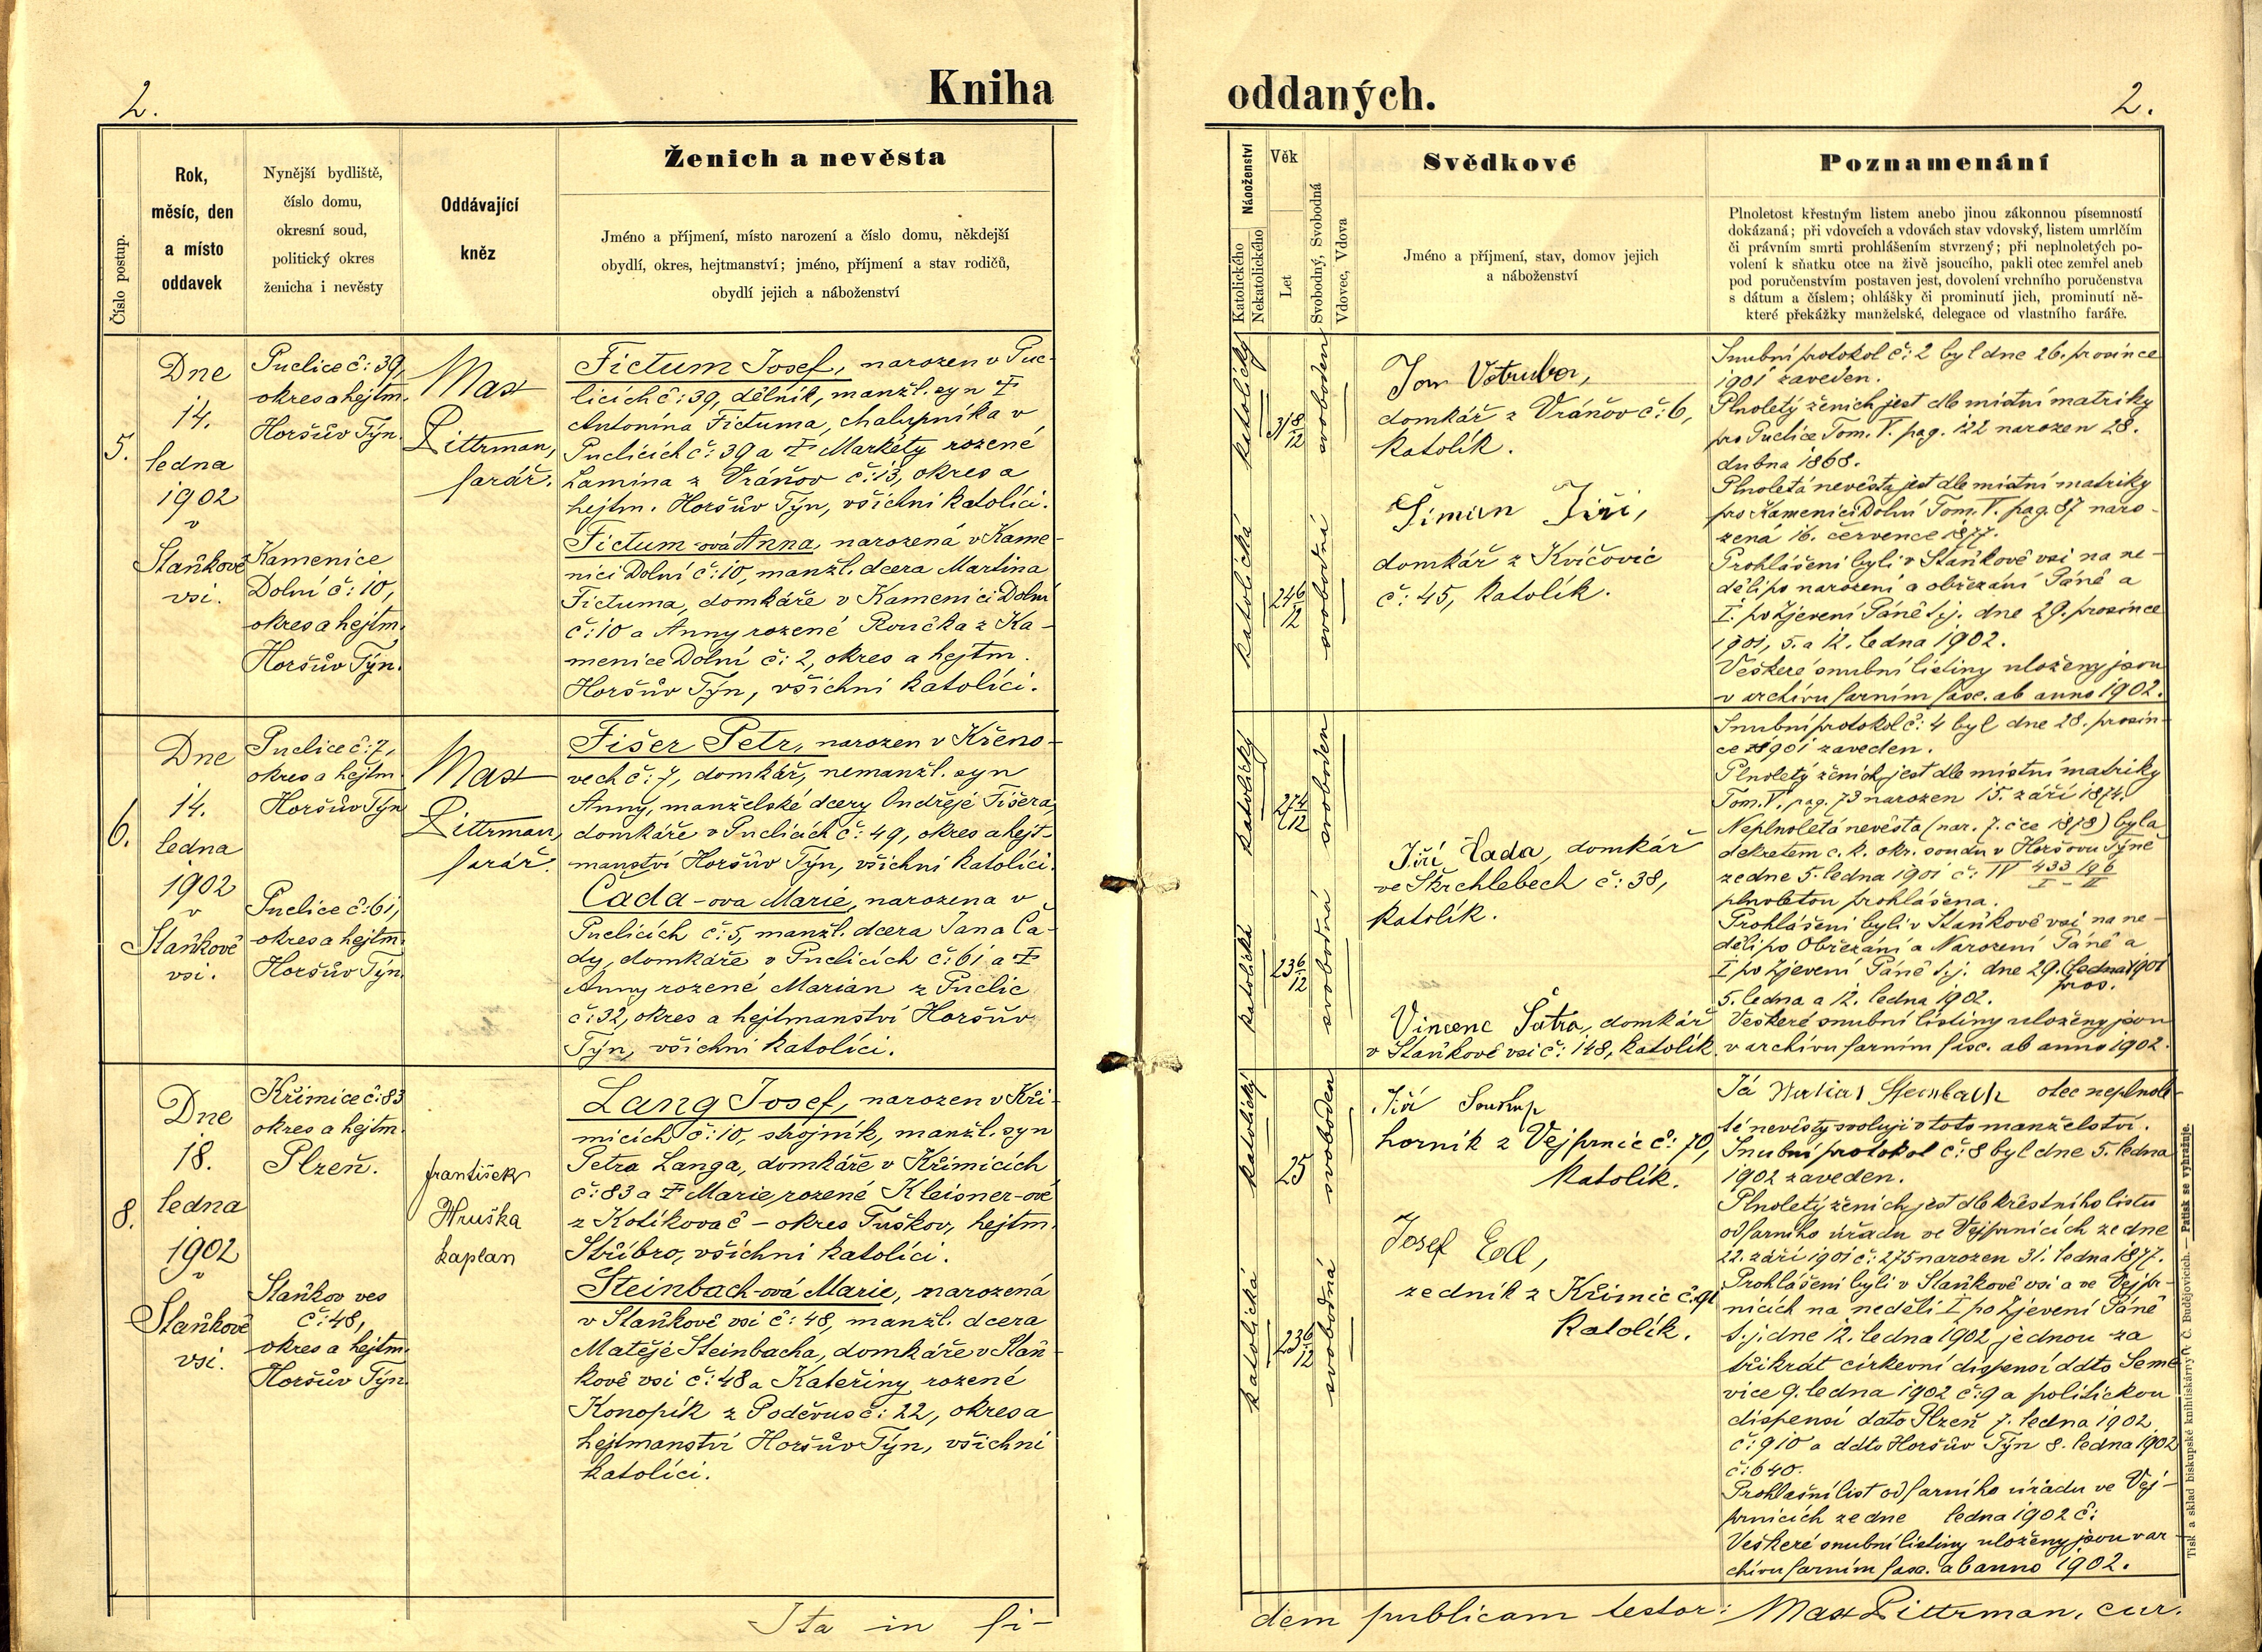 2.
Kniha
oddaných.
2.
Číslo postup.
Rok,
měsíc, den
a místo
oddavek
Nynější bydliště,
číslo domu,
okresní soud,
politický okres
ženicha i nevěsty
Oddávající
kněz
Ženich a nevěsta
Jméno a příjmení, místo narození a číslo domu, někdejší
obydlí, okres, hejtmanství; jméno, příjmení a stav rodičů,
obydlí jejich a náboženství
Náboženství
Katolického
Nekatolického
Věk
Let
Svobodný, Svobodná
Vdovec, Vdova
Svědkové
Jméno a příjmení, stav, domov jejich
a náboženství
Poznamenání
Plnoletost křestným listem anebo jinou zákonnou písemností
dokázaná; při vdovcích a vdovách stav vdovský, listem umrlčím
či právním smrti prohlášením stvrzený; při neplnoletých po-
volení k sňatku otce na živě jsoucího, pakli otec zemřel aneb
pod poručenstvím postaven jest, dovolení vrchního poručenstva
s dátum a číslem; ohlášky či prominutí jich, prominutí ně-
které překážky manželské, delegace od vlastního faráře.
5.
Dne
14.
ledna
1902
v
Staňkově
vsi.
Puclice č: 39,
okres a hejtm.
Horšův Týn.
Kamenice
Dolní č: 10,
okres a hejtm.
Horšův Týn.
Max
Pittrman,
farář.
Fictum Josef, narozen v Puc-
licích č: 39, dělník, manžl. syn †
Antonína Fictuma, chalupníka v
Puclicích č: 39 a † Markéty rozené
Lamina z Vráňov č: 13, okres a
hejtm. Horšův Týn, všichni katolíci.
Fictum-ová Anna, narozená v Kame-
nici Dolní č: 10, manžl. dcera Martina
Fictuma, domkáře v Kamenici Dolní
č: 10 a Anny rozené Roučka z Ka-
menice Dolní č: 2, okres a hejtm.
Horšův Týn, všichni katolíci.
katolický
svoboden
katolická
24 6/12
svobodná
Jan Votruba,
domkář z Vráňov č: 6,
katolík.
Šimon Jiří,
domkář z Kvíčovic
č: 45, katolík.
Snubní protokol č: 2 byl dne 26. prosince
1901 zaveden.
Plnoletý ženich jest dle místní matriky
pro Puclice Tom. V. pag. 122 narozen 28.
dubna 1868.
Plnoletá nevěsta jest dle místní matriky
pro Kamenici Dolní Tom. V. pag. 87 naro-
zená 16. července 1877.
Prohlášeni byli v Staňkově vsi na ne-
děli po narození a obřezání Páně a
I. po Zjevení Páně t. j. dne 29. prosince
1901, 5. a 12. ledna 1902.
Veškeré snubní listiny uloženy jsou
v archivu farním fasc. ab anno 1902.
6.
Dne
14.
ledna
1902
v
Staňkově
vsi.
Puclice č: 7,
okres a hejtm
Horšův Týn
Puclice č: 61,
okres a hejtm.
Horšův Týn.
Max
Pittrman,
farář.
Fišer Petr, narozen v Křeno-
vech č: 7, domkář, nemanžl. syn
Anny, manželské dcery Ondřeje Fišera,
domkáře v Puclicích č: 49, okres a hejt-
manství Horšův Týn, všichni katolíci.
Čada-ova Marie, narozena v
Puclicích č: 5, manžl. dcera Jana Ča-
dy, domkáře v Puclicích č: 61 a †
Anny rozené Marian z Puclic
č: 32, okres a hejtmanství Horšův
Týn, všichni katolíci.
katolický
27 4/12
svoboden
katolická
23 6/12
svobodná
Jiří Čada, domkář
ve Škrchlebech č: 38,
katolík.
Vincenc Šatra, domkář
v Staňkově vsi č: 148, katolík.
Snubní protokol č: 4 byl dne 28. prosin-
ce 1901 zaveden.
Plnoletý ženich jest dle místní matriky
Tom. V. pag. 73 narozen 15. září 1874.
Neplnoletá nevěsta (nar. 7. čce 1878) byla
dekretem c. k. okr. soudu v Horšovu Týně
ze dne 5. ledna 1901 č: IV 433 196
I-II
plnoletou prohlášena.
Prohlášeni byli v Staňkově vsi na ne-
děli po Obřezání a Narození Páně a
I po Zjevení Páně t. j. dne 29. (ledna) 1901
pros.
5. ledna a 12. ledna 1902.
Veškeré snubní listiny uloženy jsou
v archivu farním fasc. ab anno 1902.
8.
Dne
18.
ledna
1902
v
Staňkově
vsi.
Křimice č: 83
okres a hejtm.
Plzeň.
Staňkov ves
č: 48,
okres a hejtm.
Horšův Týn
František
Hruška
kaplan
Lang Josef, narozen v Kři-
micích č: 10, strojník, manžl. syn
Petra Langa, domkáře v Křimicích
č: 83 a † Marie, rozené Kleisner-ové
z Kotíkova č - okres Tuškov, hejtm.
Stříbro, všichni katolíci.
Steinbach-ová Marie, narozená
v Staňkově vsi č: 48, manžl. dcera
Matěje Steinbacha, domkáře v Staň-
kově vsi č: 48 a Kateřiny rozené
Konopík z Poděvus č: 22, okres a
hejtmanství Horšův Týn, všichni
katolíci.
katolický
25
svoboden
katolická
23 6/12
svobodná
Jiří Soukup
horník z Vejprnic č: 70,
katolík.
Josef Edl,
zedník z Křimic č. 91
katolík.
Já Steinbach otec neplnole-
té nevěsty svoluji v toto manželství.
Snubní protokol č: 8 byl dne 5. ledna
1902 zaveden.
Plnoletý ženich jest dle křestního listu
od farního úřadu ve Vejprnicích ze dne
22. září 1901 č: 275 narozen 31. ledna 1877.
Prohlášeni byli v Staňkově vsi a ve Vejpr-
nicích na neděli I po Zjevení Páně
t. j. dne 12. ledna 1902 jednou za
třikrát církevní dispensí ddto Seme-
vice 9. ledna 1902 č: 9 a politickou
dispensí dato Plzeň 7. ledna 1902
č: 910 a ddto Horšův Týn 8. ledna 1902
č: 640.
Prohlašní list od farního úřadu ve Vej-
prnicích ze dne ledna 1902 č:
Veškeré snubní listiny uloženy jsou v ar-
chivu farním fasc. ab anno 1902.
Ita in fi-
dem publicam testor: Max Pittrman, cur.
Tisk a sklad biskupské knihtiskárny v Č. Budějovicích. — Patisk se vyhražuje.